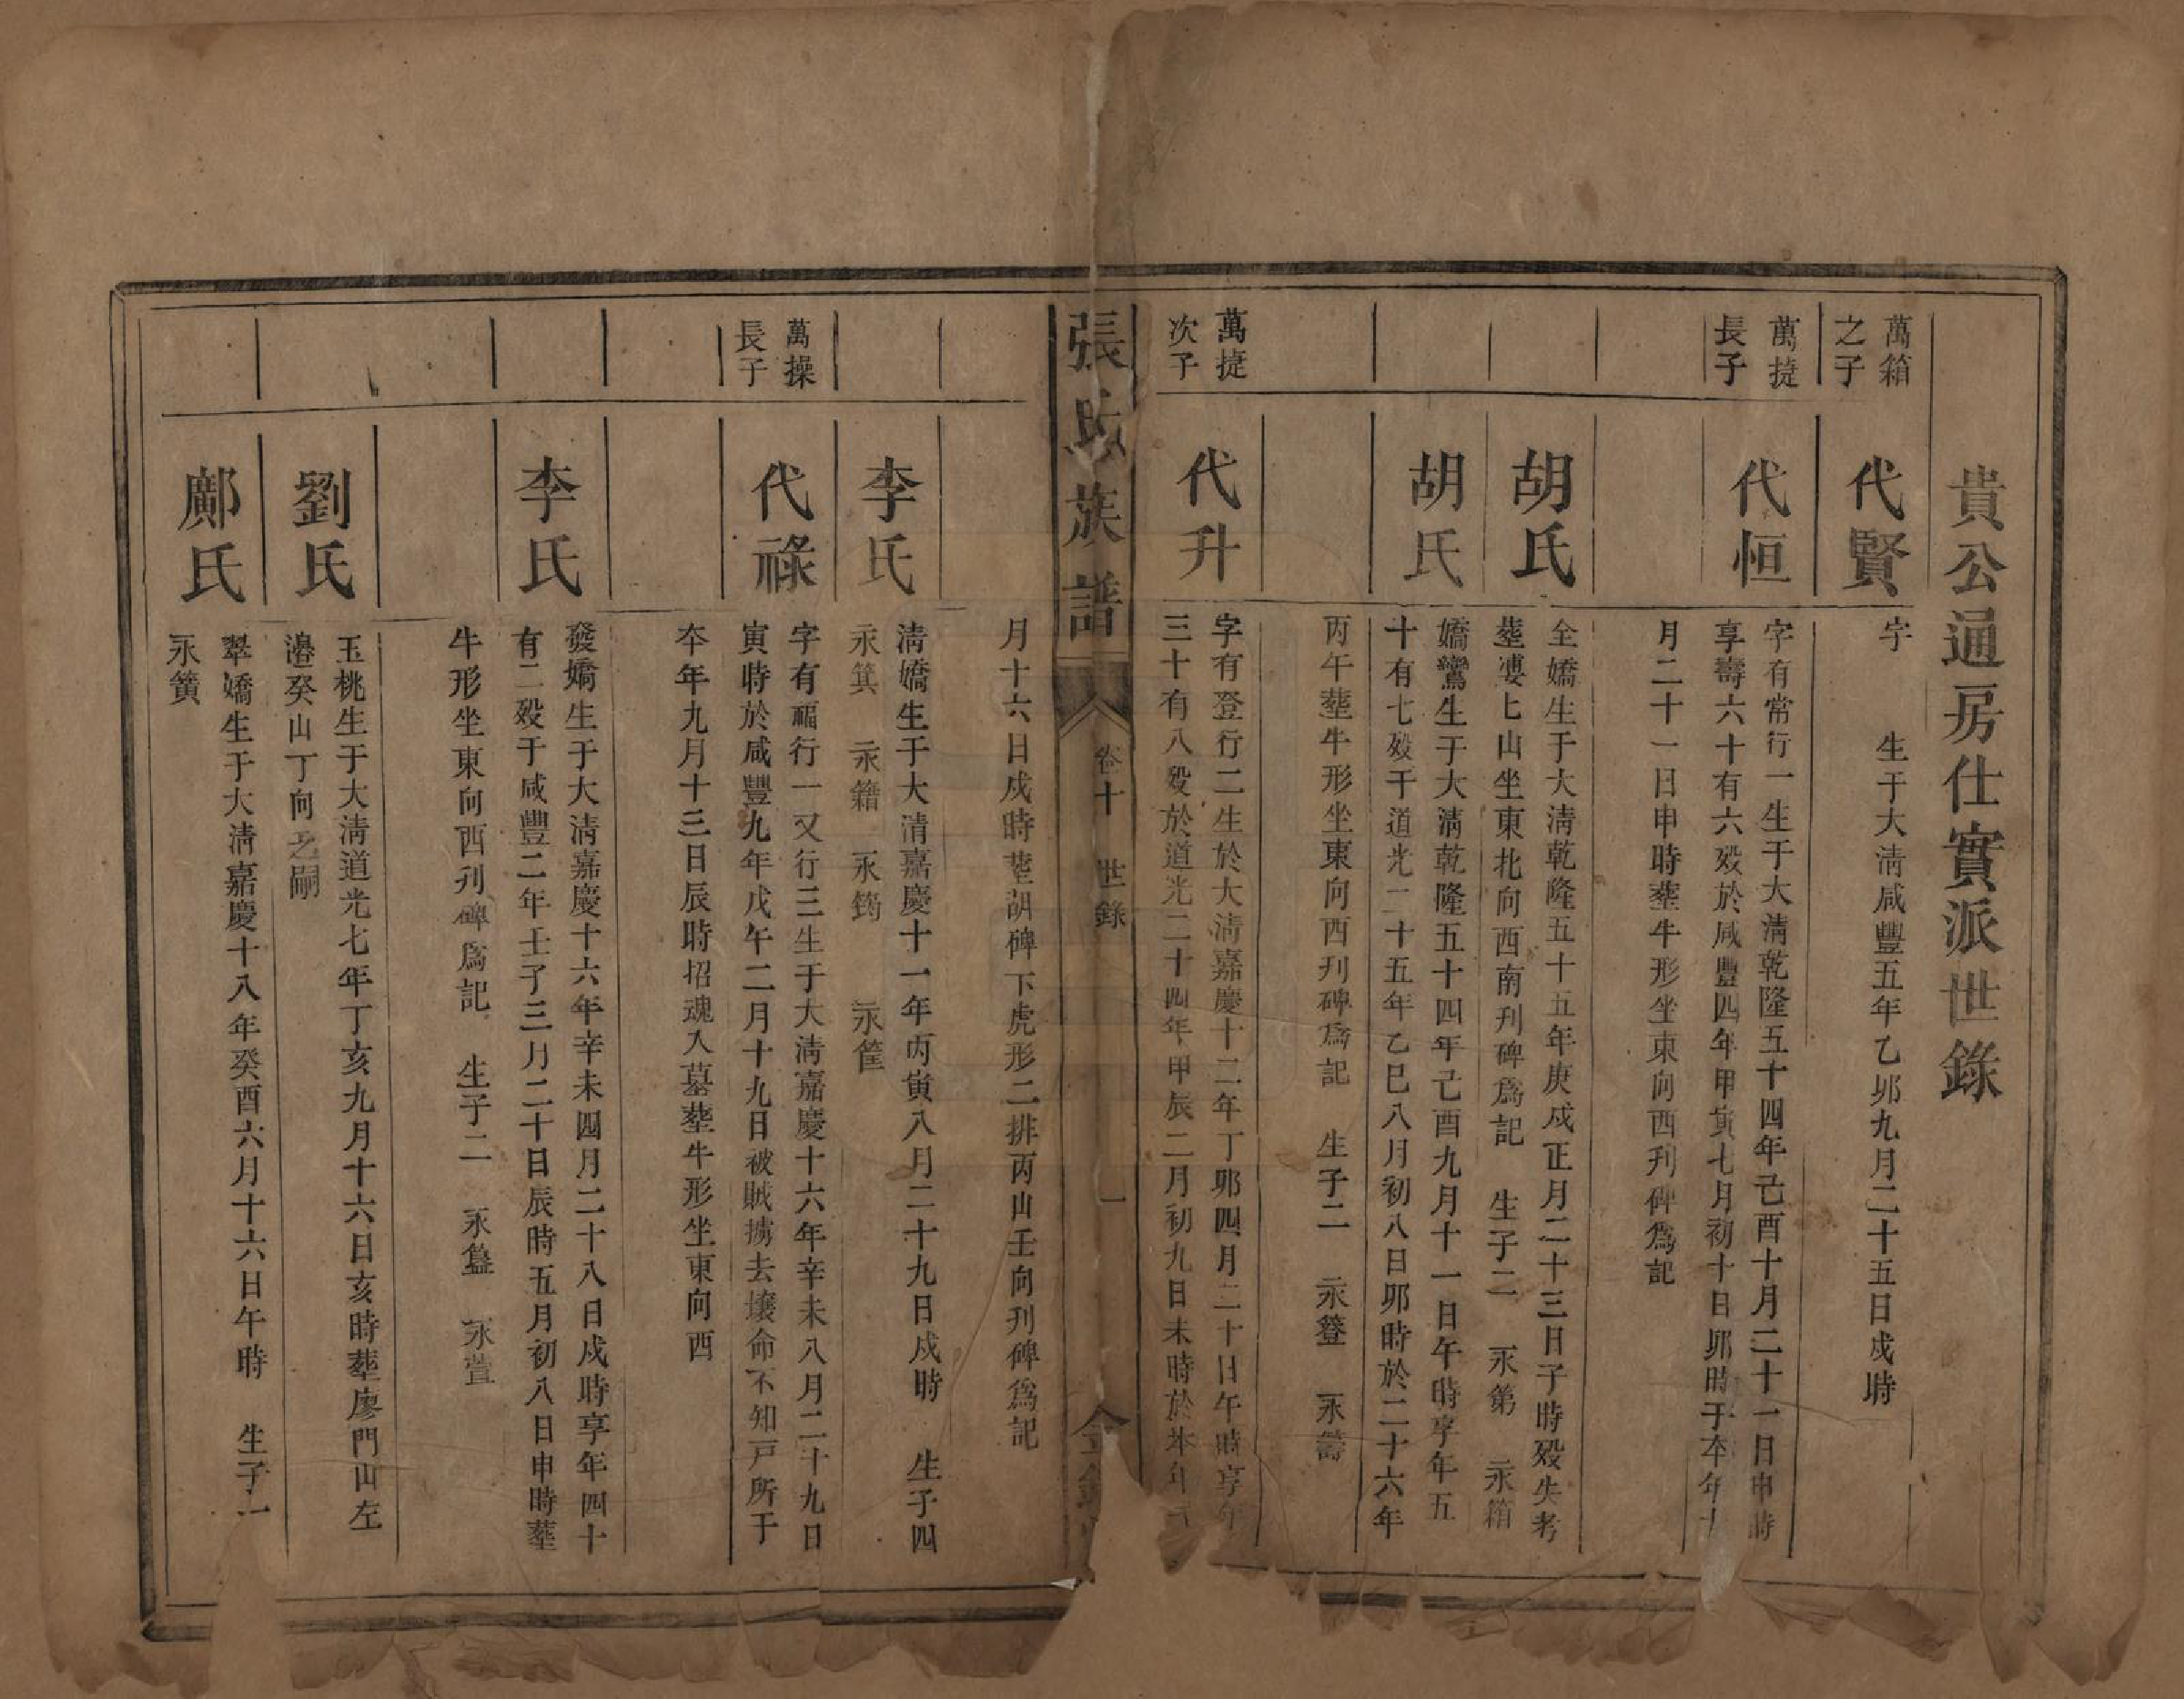 貴公通房仕實派世錄
萬箱
之子
代賢
字 生于大淸咸豐五年乙夘九月二十五日戍時
萬㨗
長子
代恒
字有常行一生于大淸乾隆五十四年己酉十月二十一日申時
享壽六十有六歿於咸豐四年甲寅七月初十日夘時于本年十
月二十一日申時塟牛形坐東向西刋碑爲記
胡氏
全嬌生于大淸乾隆五十五年庚戍正月二十三日子時歿失考
塟凄七山坐東北向西南刋碑爲記 生子二 永第 永箱
胡氏
嬌鸞生于大淸乾隆五十四年己酉九月十一日午時享年五
十有七歿于道光二十五年乙巳八月初八日夘時於二十六年
丙午塟牛形坐東向西刋碑爲記 生子二 永簦 永籌
萬㨗
次子
代升
字有登行二生於大淸嘉慶十二年丁夘四月二十日午時享年
三十有八歿於道光二十四年甲辰二月初九日未時於本年
張氏族譜
卷十 世錄
一
金鑑
月十六日戍時塟胡碑下虎形二排丙山壬向刋碑爲記
李氏
淸嬌生于大淸嘉慶十一年丙寅八月二十九日戍時 生子四
永箕 永籍 永筠 永筐
萬操
長子
代祿
字有福行一又行三生于大淸嘉慶十六年辛未八月二十九日
寅時於咸豐九年戊午二月十九日被賊擄去壞命不知尸所于
本年九月十三日辰時招魂入墓塟牛形坐東向西
李氏
發嬌生于大淸嘉慶十六年辛未四月二十八日戍時享年四十
有二歿于咸豐二年壬子三月二十日辰時五月初八日申時塟
牛形坐東向西刋碑爲記 生子二 永簋 永萱
劉氏
玉桃生于大淸道光七年丁亥九月十六日亥時塟廖門山左
邊癸山丁向乏嗣
鄺氏
翠嬌生于大淸嘉慶十八年癸酉六月十六日午時 生子一
永簧